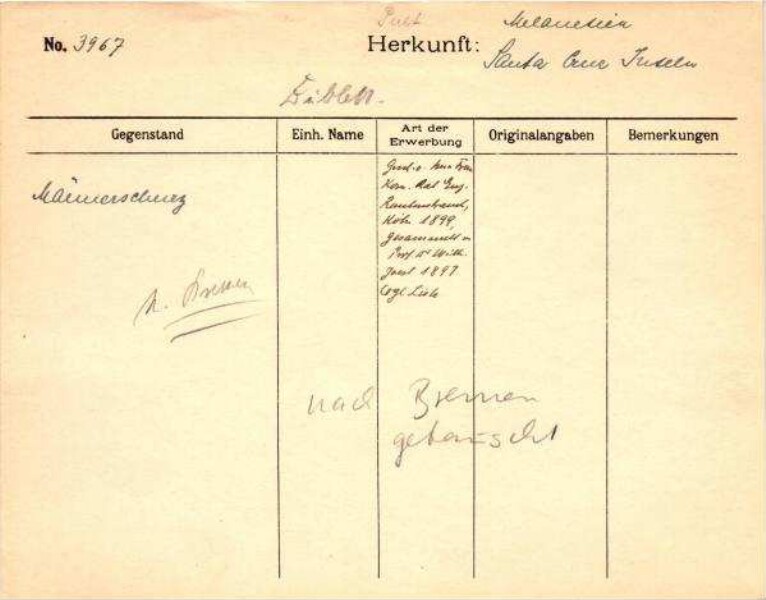 Melanesien
No. 3967 Herkunft: Santa Cruz Inseln
Gegenstand Einh. Name Art der Erwerbung Originalangaben Bemerkungen
Männerschurz
Gesch. v. Frau
Kom. Rat Eug.
Rautenstrauch,
Köln 1899,
Gesammelt v.
Prof. Dr Wilh.
Joest 1897
Vgl Liste
n. Bremen
nach Bremen
getauscht